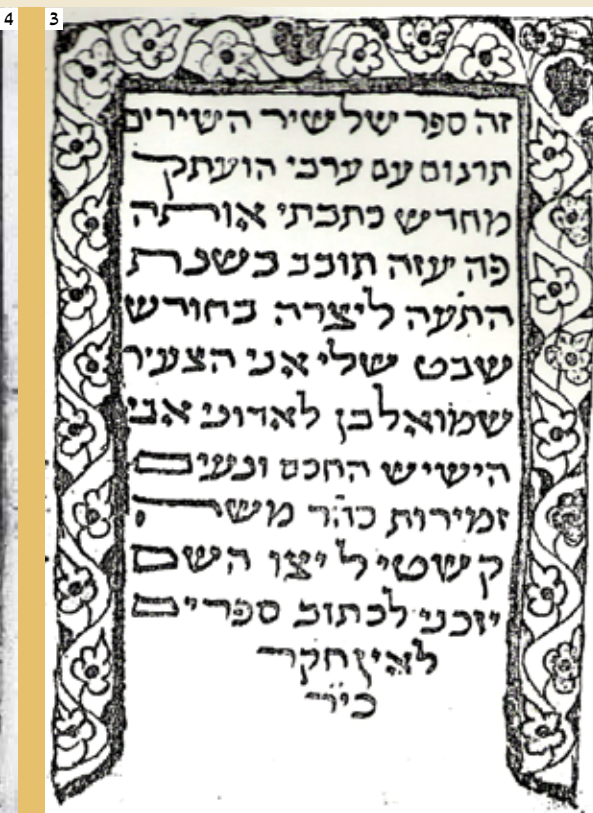 4
3
זה ספר של שיר השירים
תרגום עם ערבי הועתק
מחדש כתבתי אותה
פה יעזה תובב בשנת
התעה ליצרה בחורש
שבט שלי אני הצעיר
שמואל בן לאדוני אבי
הישיש החכם ונעים
זמירות כהר משה
קשטי ל יצו השם
יזכני לכתוב ספרים
לאין חקר
כיר